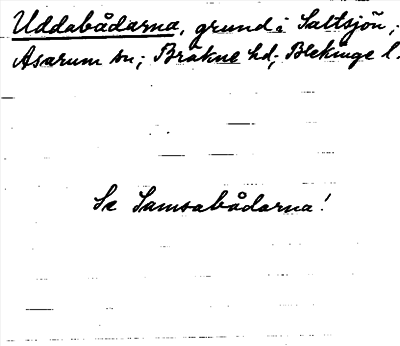 Uddabådarna, grund i Saltsjön,
Asarum sn; Bräkne hd; Blekinge l.
Se Samsabådarna!